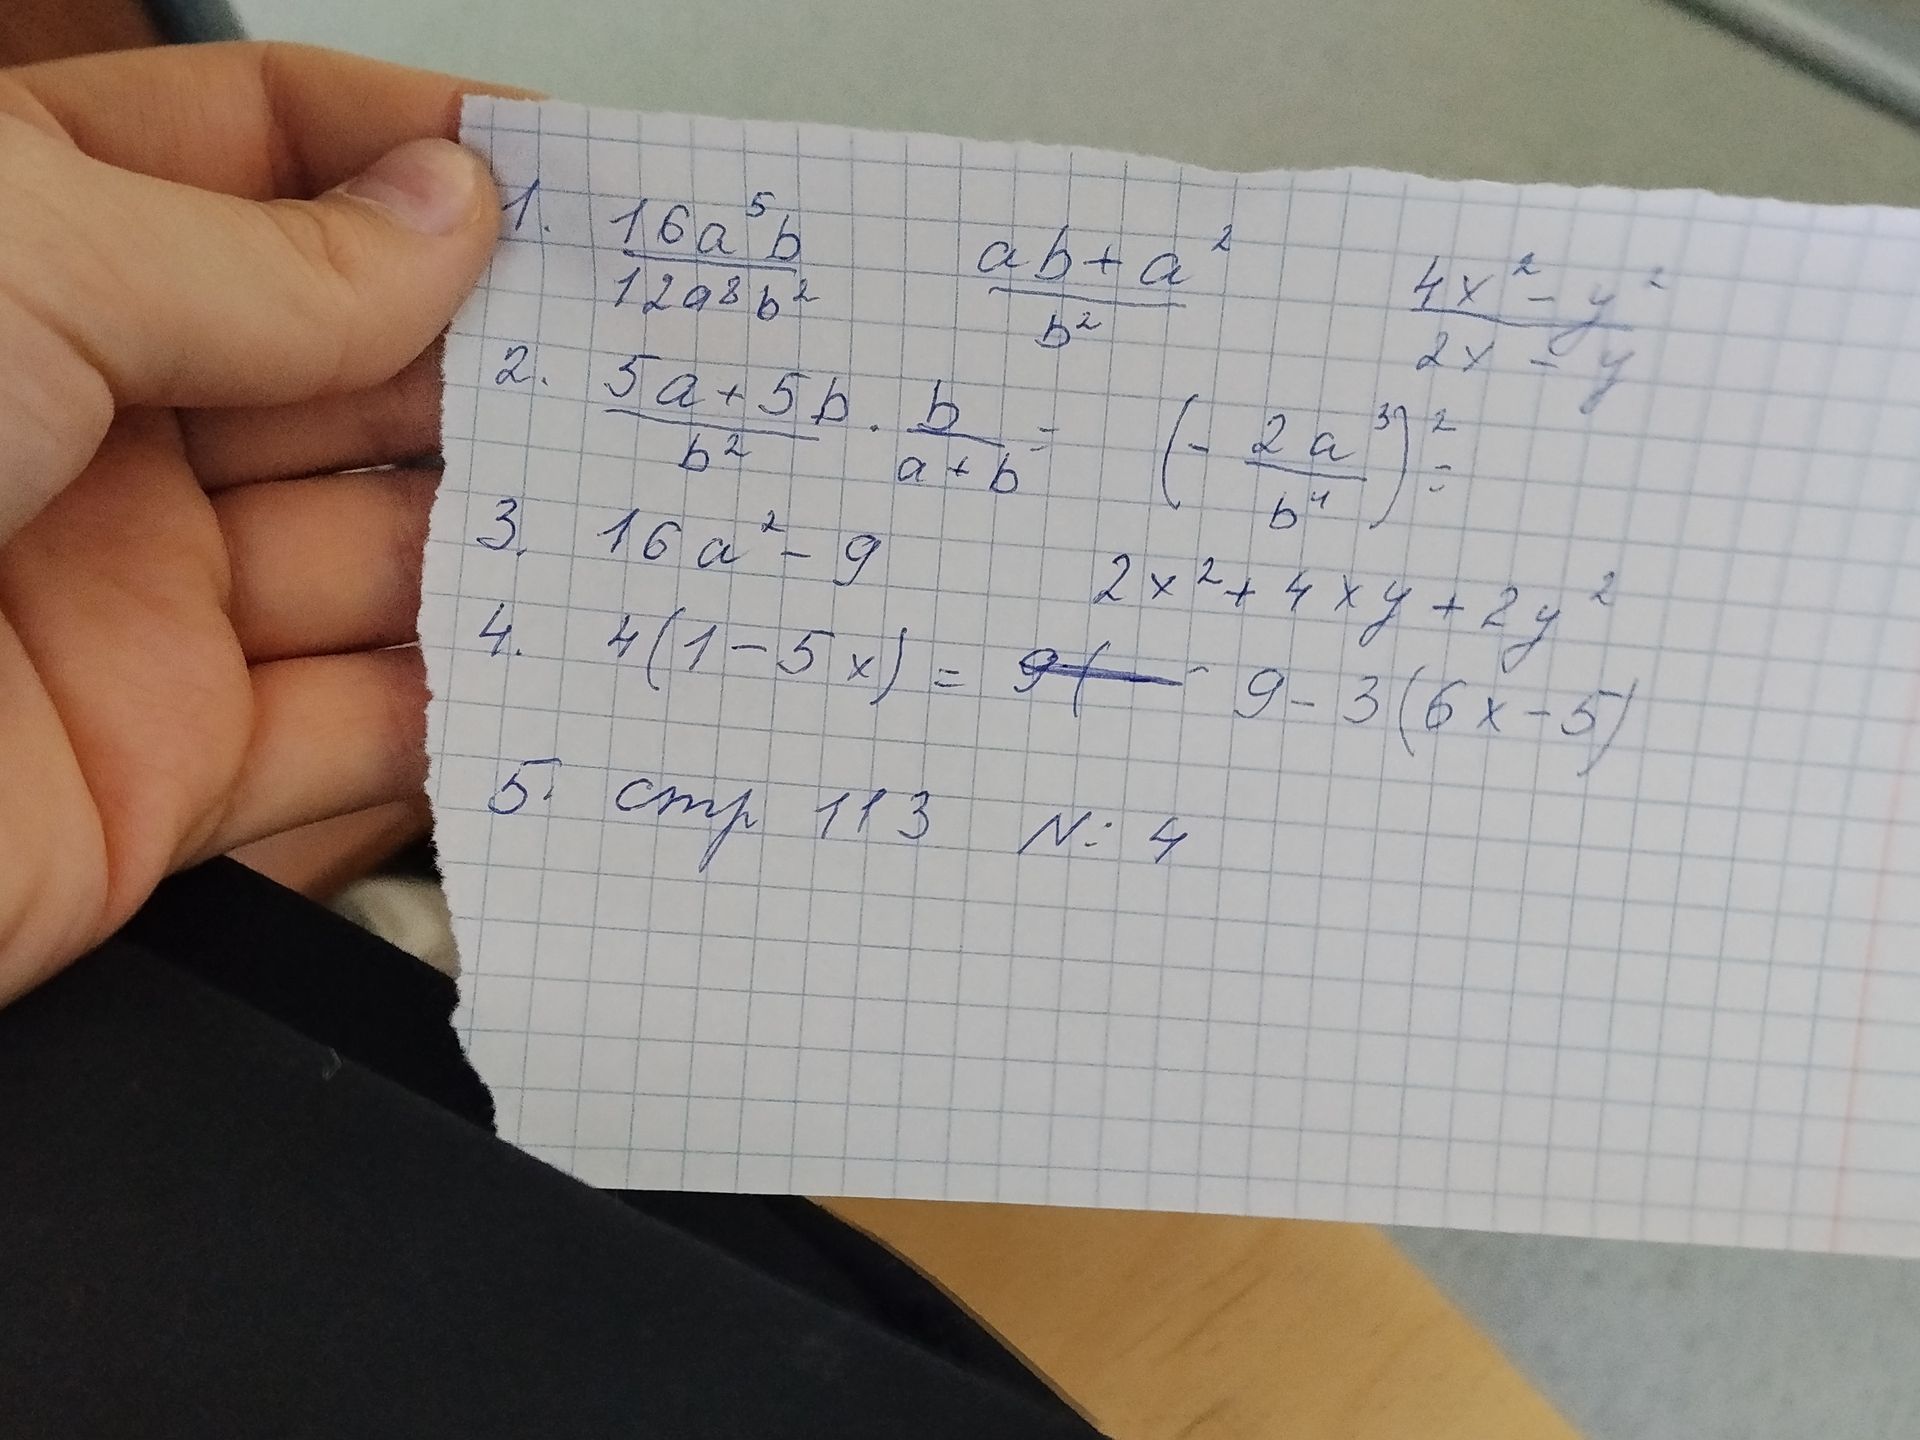 1. 16a⁵b / 12a⁸b²   ab+a² / b²   4x²-y² / 2x-y
2. 5a+5b / b² · b / a+b =   (- 2a³ / b⁴)² =
3. 16a²-9   2x²+4xy+2y²
4. 4(1-5x) = 9-3(6x-5)
5. стр 113 N: 4